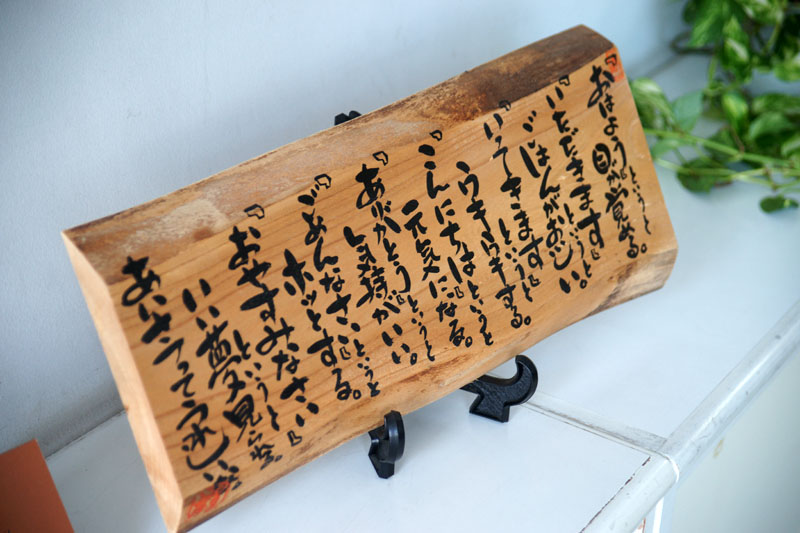 『おはよう』というと
目が覚める。
『いただきます』というと
ごはんがおいしい。
『いってきます』というと
ウキウキする。
『こんにちは』というと
元気になる。
『ありがとう』というと
気持がいい。
『ごめんなさい』というと
ホッとする。
『おやすみなさい』というと
いい夢
あいさつってうれしい